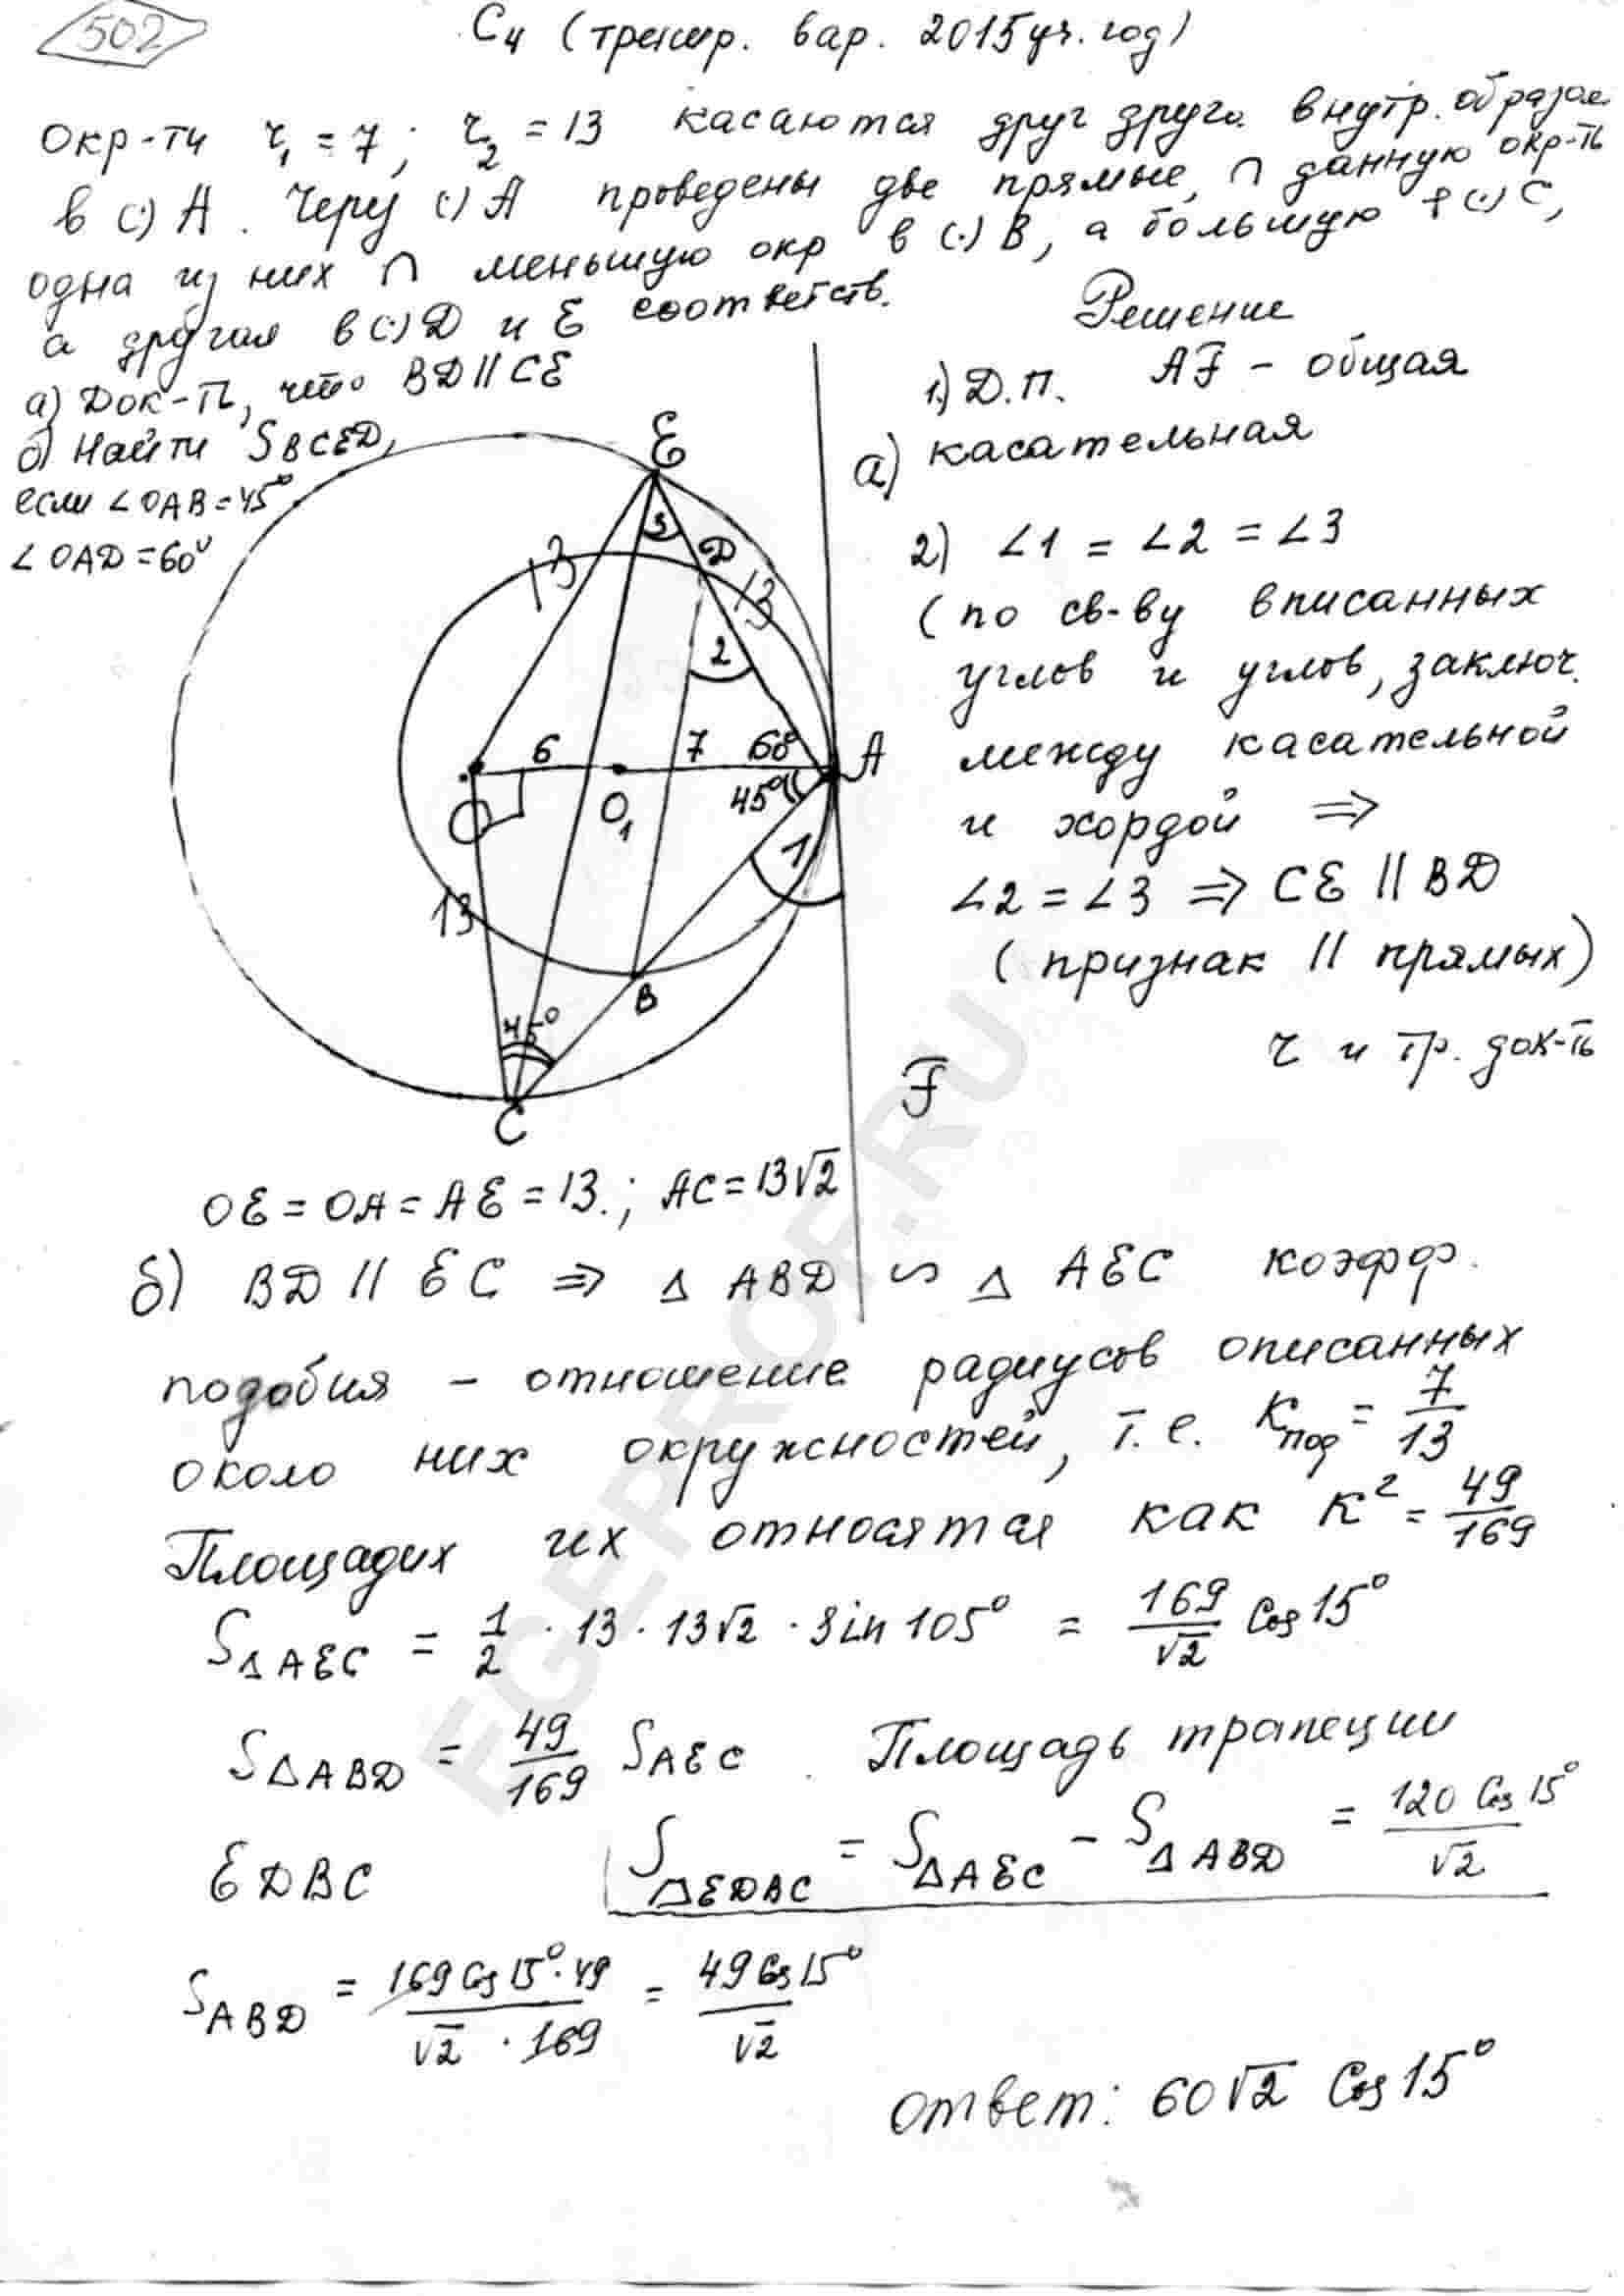 502
C4 (тренир. вар. 2015 уч. год)
Окр-ти r₁ = 7; r₂ = 13 касаются друг друга внутр. образом
в (·) A. Через (·) A проведены две прямые, ∩ данную окр-ть
одна из них ∩ меньшую окр в (·) B, а большую в (·) C,
а другая в (·) D и E соответств.
а) Док-ть, что BD || CE
б) Найти S BCED,
если ∠OAB = 45°
∠OAD = 60°
Решение
1) Д.П. AF – общая
а) касательная
2) ∠1 = ∠2 = ∠3
(по св-ву вписанных
углов и углов, заключ.
между касательной
и хордой ⇒
∠2 = ∠3 ⇒ CE || BD
(признак || прямых)
ч и тр. док-ть
E
3
D
13
13
2
6
7
60°
A
45°
O
O₁
1
13
B
45°
C
F
OE = OA = AE = 13.; AC = 13√2
б) BD || EC ⇒ △ ABD ∽ △ AEC коэфф.
подобия – отношение радиусов описанных
около них окружностей, т.е. Kпод = 7/13
Площадих их относятся как K² = 49/169
S△AEC = 1/2 · 13 · 13√2 · Sin 105° = 169/√2 Cos 15°
S△ABD = 49/169 S AEC. Площадь трапеции
EDBC S△EDBC = S△AEC – S△ABD = 120 Cos 15°/√2
S ABD = 169 Cos 15° · 49/√2 · 169 = 49 Cos 15°/√2
Ответ: 60√2 Cos 15°
EGEPROF.RU